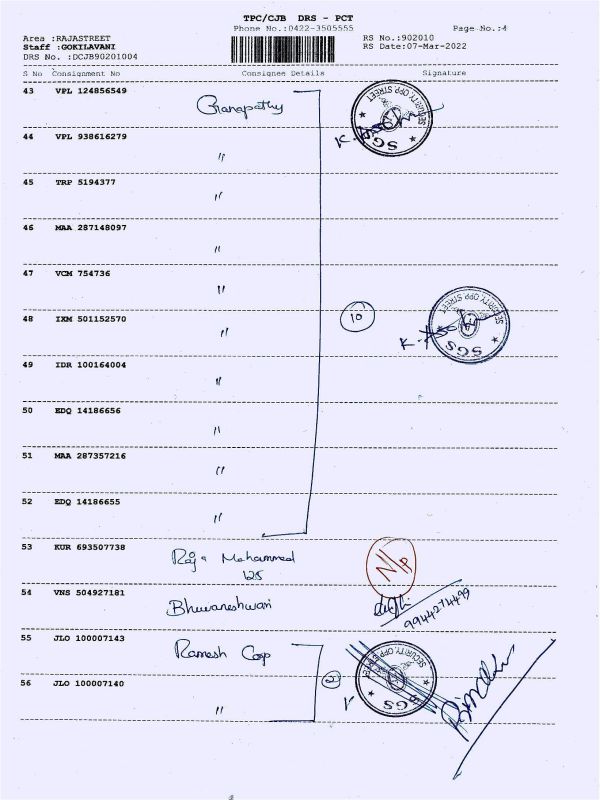 TPC/CJB DRS - PCT
Phone No.:0422-3505555
Page No.:4
Area :RAJASTREET
RS No.:902010
Staff :GOKILAVANI
RS Date:07-Mar-2022
DRS No. :DCJB90201004
S No Consignment No Consignee Details Signature
43 VPL 124856549 Ganapathy
44 VPL 938616279 "
45 TRP 5194377 "
46 MAA 287148097 "
47 VCM 754736 "
48 IXM 501152570 " 10
49 IDR 100164004 "
50 EDQ 14186656 "
51 MAA 287357216 "
52 EDQ 14186655 "
53 KUR 693507738 Raja Mohammed N/P
125
54 VNS 504927181 Bhuvaneshwari 9944274499
55 JLO 100007143 Ramesh Corp
56 JLO 100007140 " 2
SECURITY OPP STREET
SGS
SECURITY OPP STREET
SGS
SGS